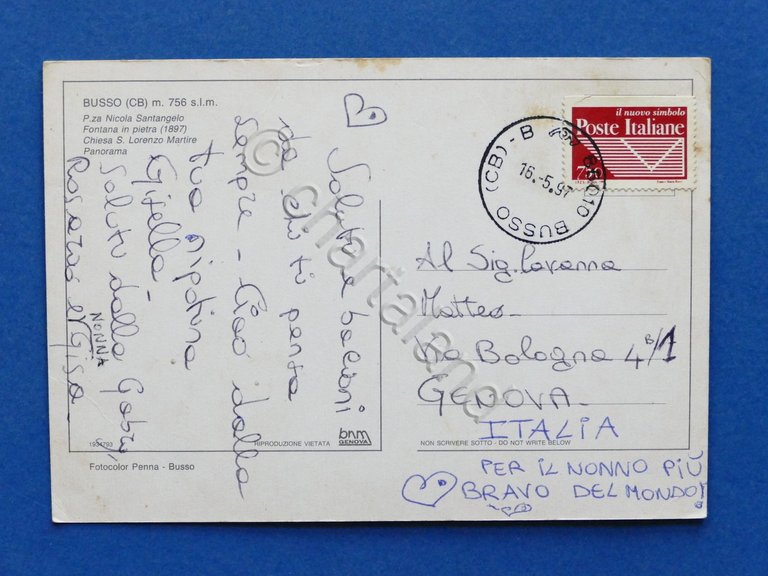 BUSSO (CB) m. 756 s.l.m.
P.za Nicola Santangelo
Fontana in pietra (1897)
Chiesa S. Lorenzo Martire
Panorama
Saluti e bacioni
da chi ti pensa
sempre - Ciao dalla
tua nipotina
Gisella -
Saluti dalla Gabry,
NONNA
Rosaria e Gisa -
1934793
RIPRODUZIONE VIETATA
bnm
GENOVA
Fotocolor Penna - Busso
il nuovo simbolo
Poste Italiane
750
86010 BUSSO (CB) - B
16.-5.97
Al Sig. Cavanna
Matteo -
Via Bologna 4B/1
GENOVA -
ITALIA
NON SCRIVERE SOTTO - DO NOT WRITE BELOW
PER IL NONNO PIÙ
BRAVO DEL MONDO!
© chartaland